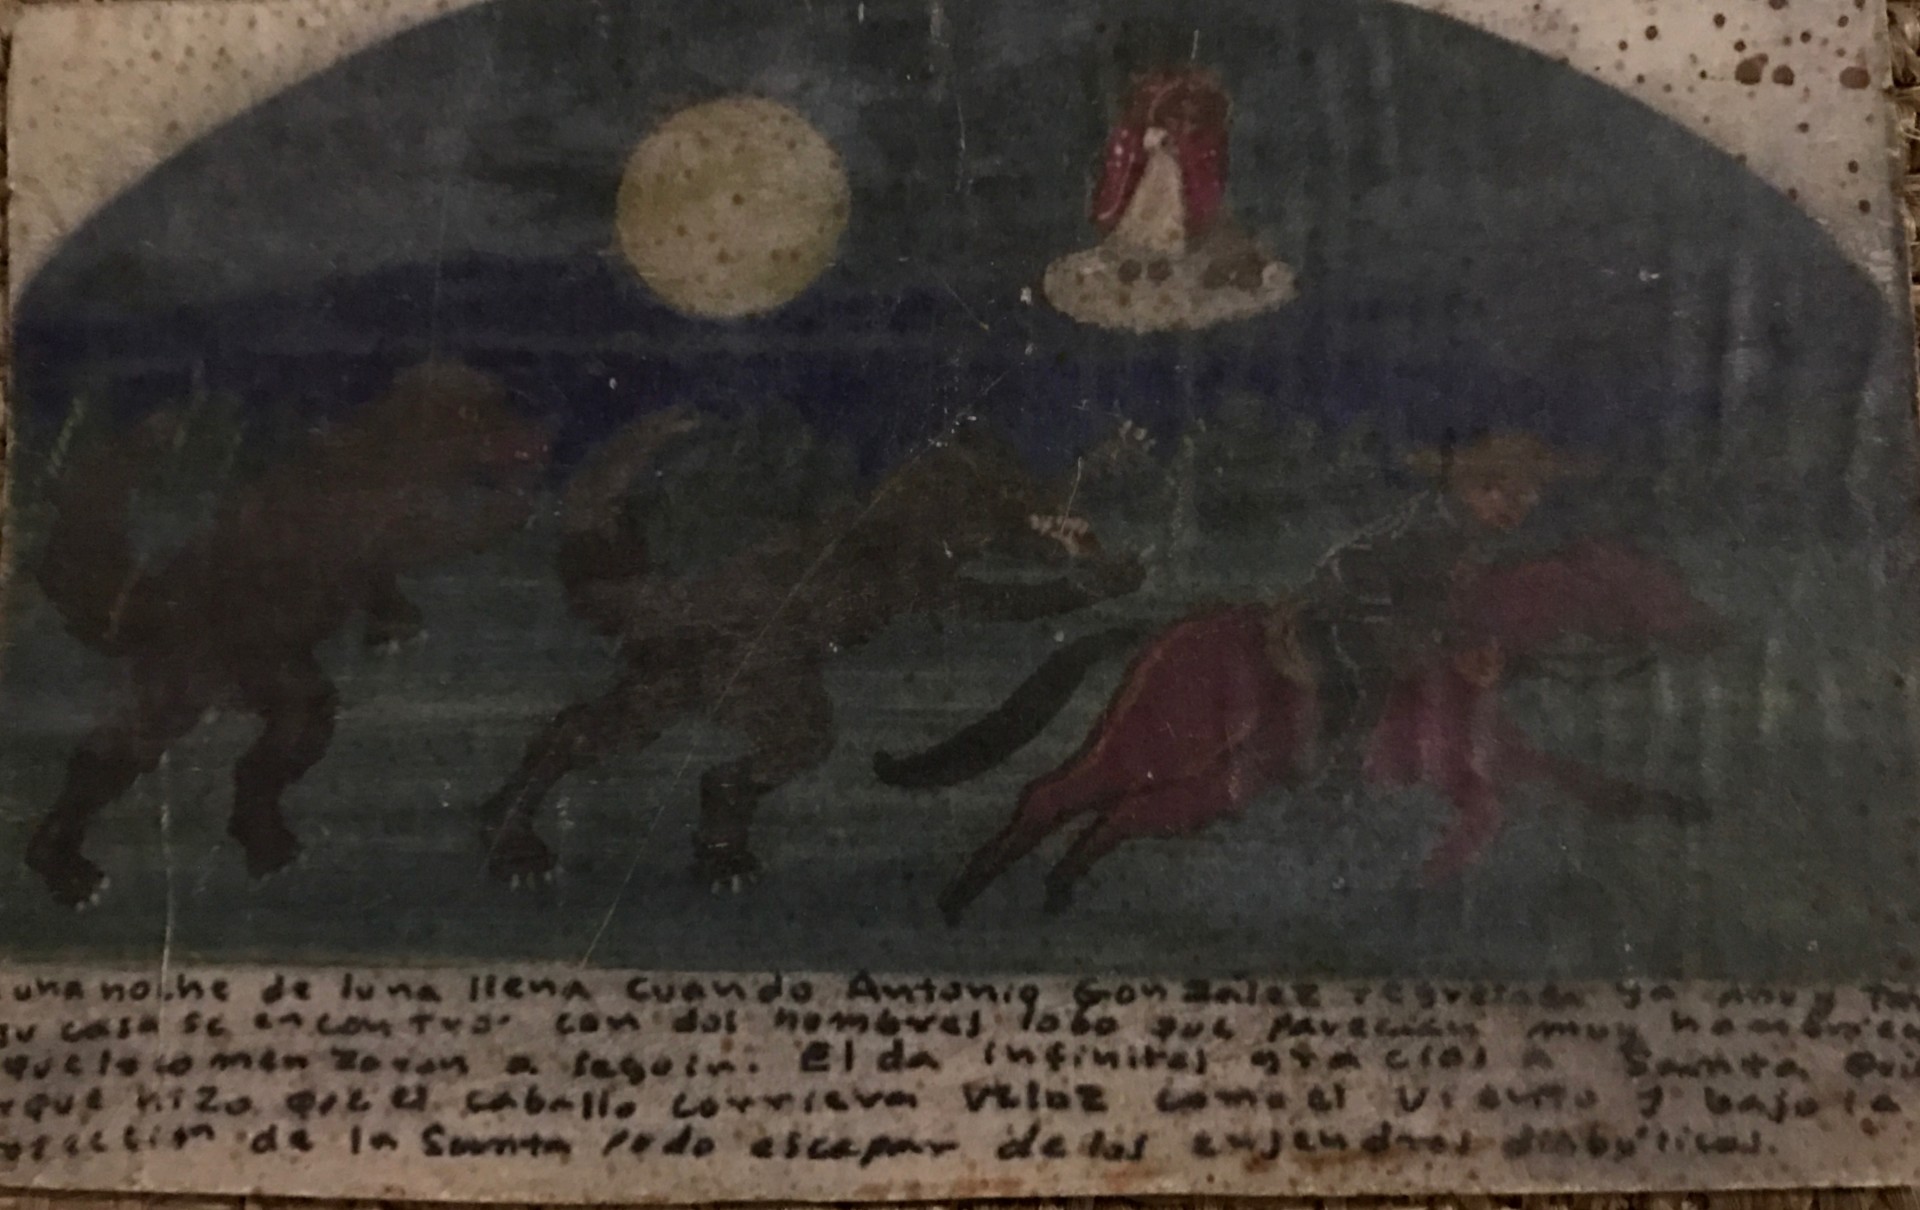 una noche de luna llena cuando Antonio Gonzalez regresaba ya muy
su casa se encontro con dos hombres lobo que parecian muy
que lo comenzaron a seguir. El da infinitas gracias a Santa
que hizo que el caballo corriera veloz como el viento y bajo la
de la Santa pudo escapar de los enjendros diabolicos.